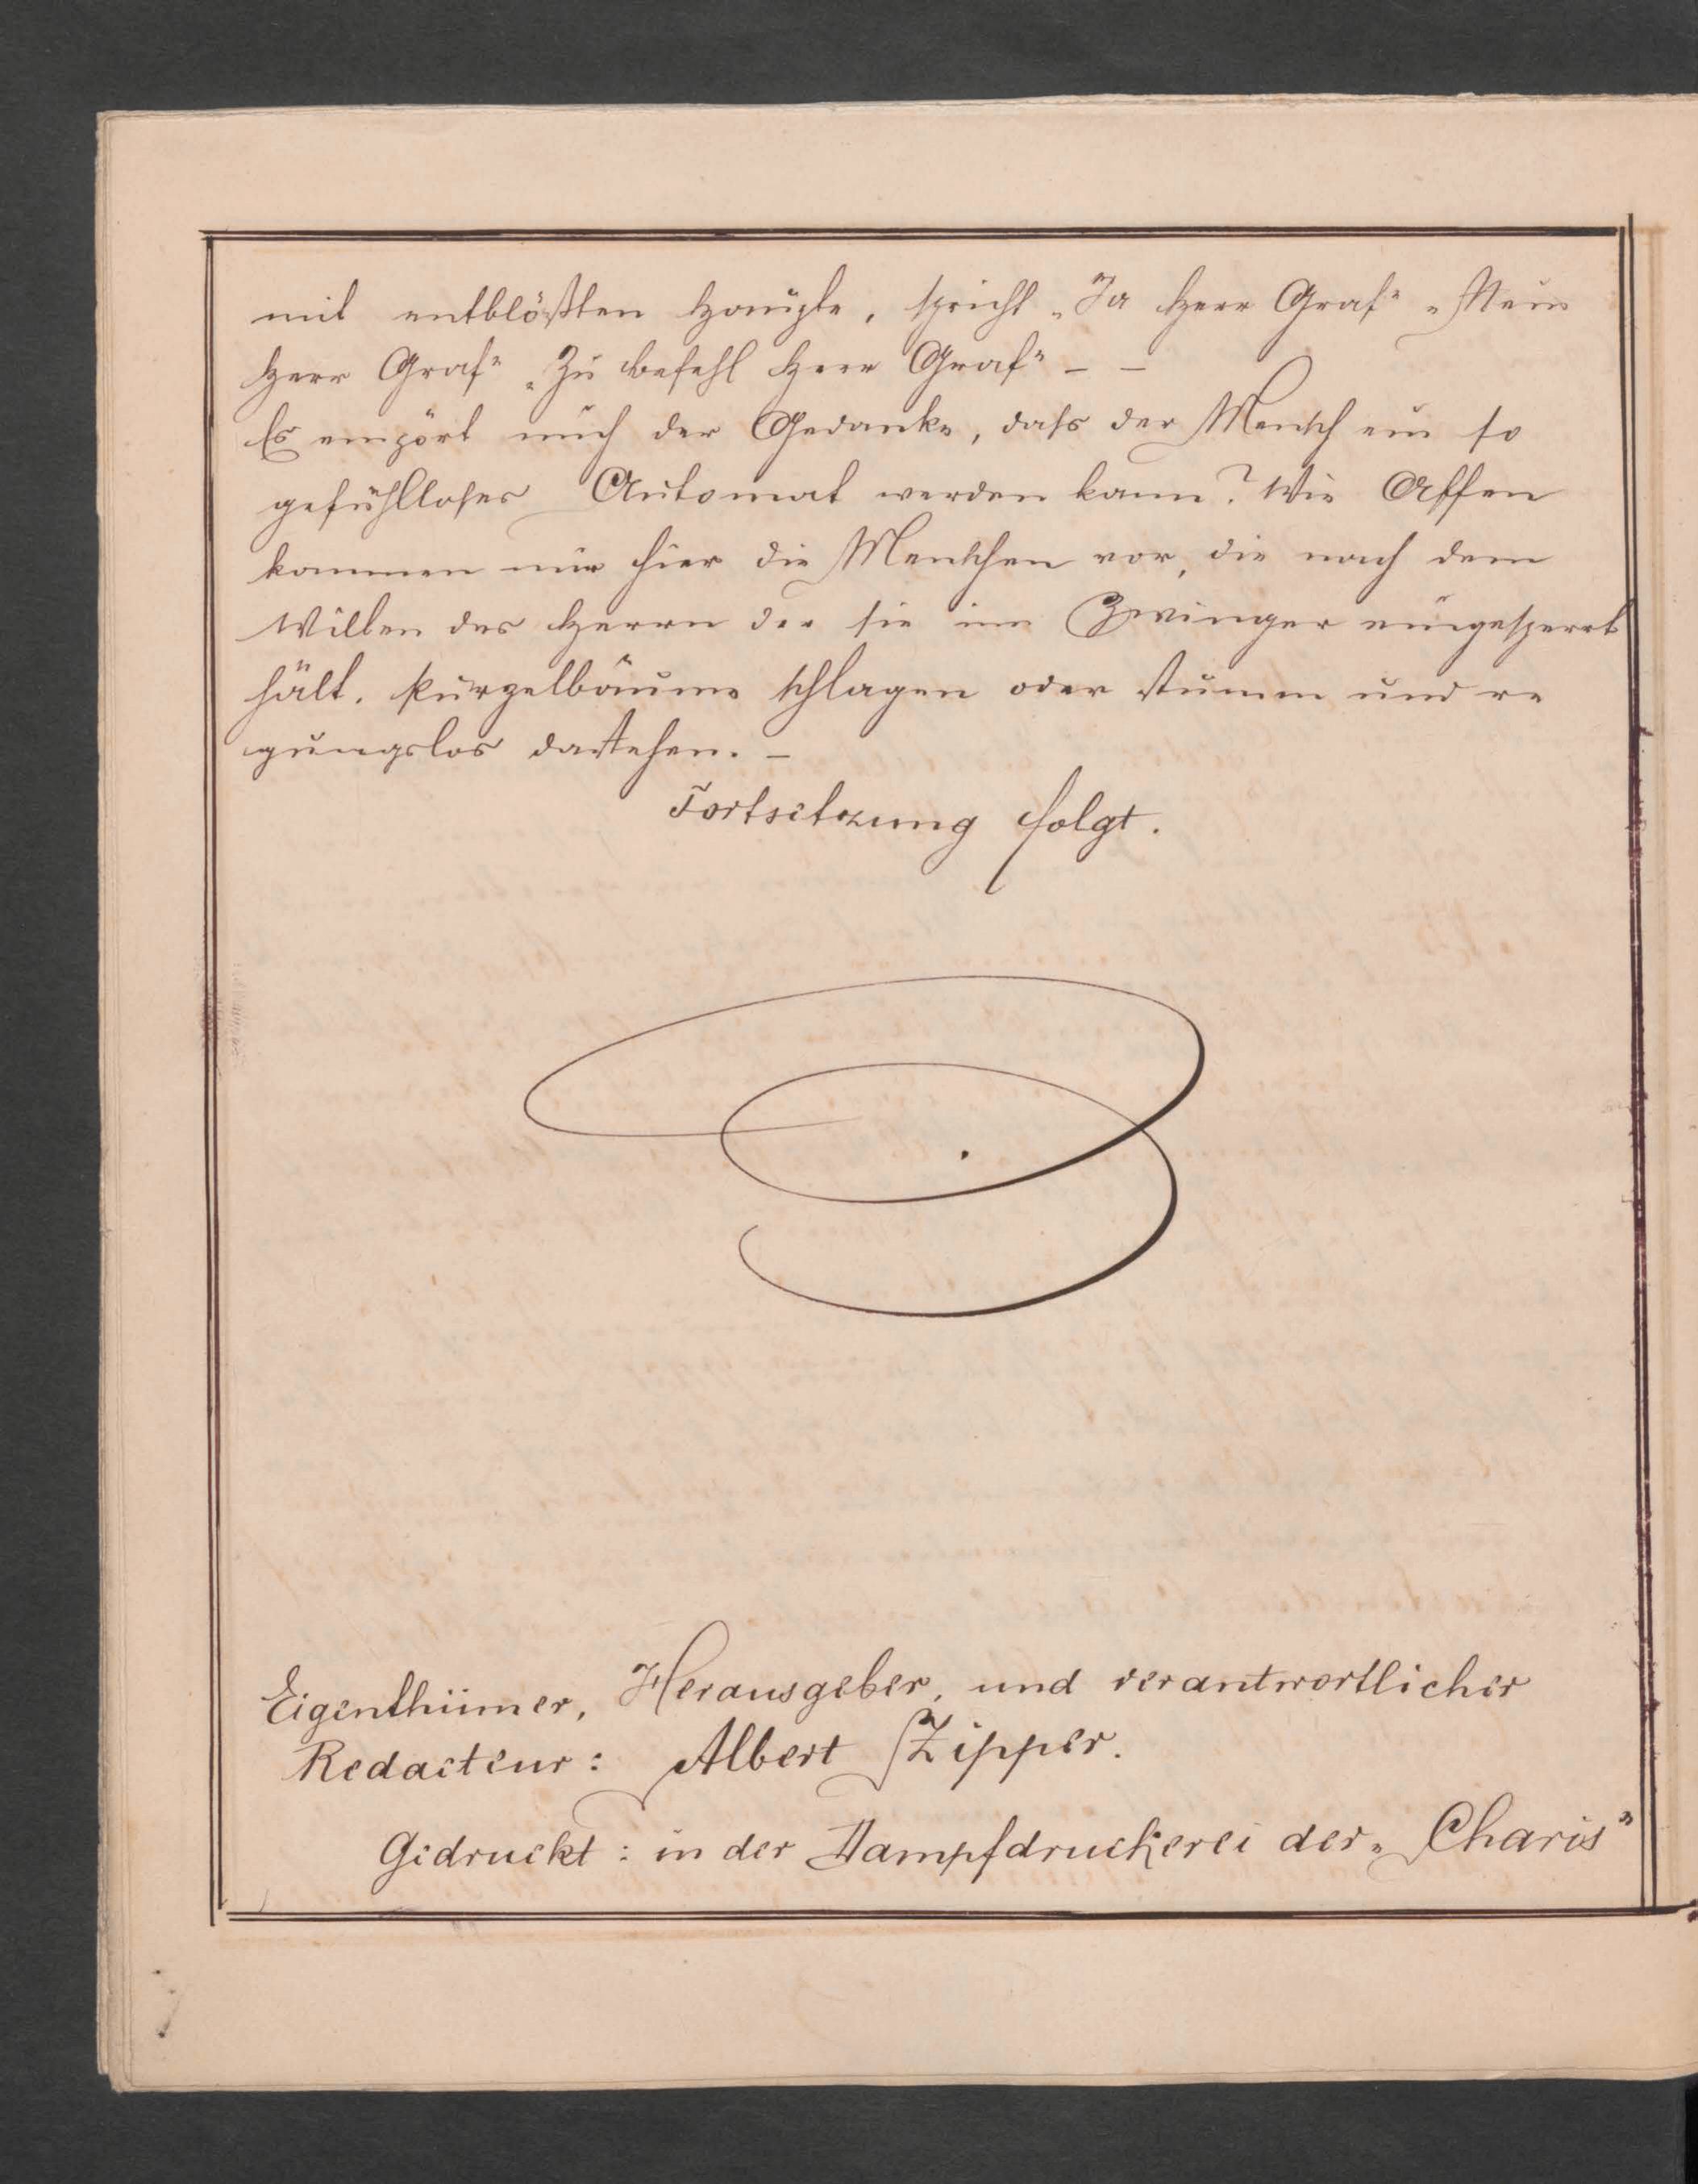 mit entblößten Haupte, spricht „Ja Herr Graf“ „Nein
Herr Graf“ „Zu Befehl Herr Graf“ – –
Es empört mich der Gedanke, dass der Mensch ein so
gefühlloser Automat werden kann? Wie Affen
kommen mir hier die Menschen vor, die nach dem
Willen des Herrn der sie im Zwinger eingesperrt
hält. Purzelbäume schlagen oder stumm und re
gungslos dastehen. –
Fortsetzung folgt.
Eigenthümer, Herausgeber, und verantwortlicher
Redacteur: Albert Zipper.
Gedruckt: in der Dampfdruckerei der „Charis“